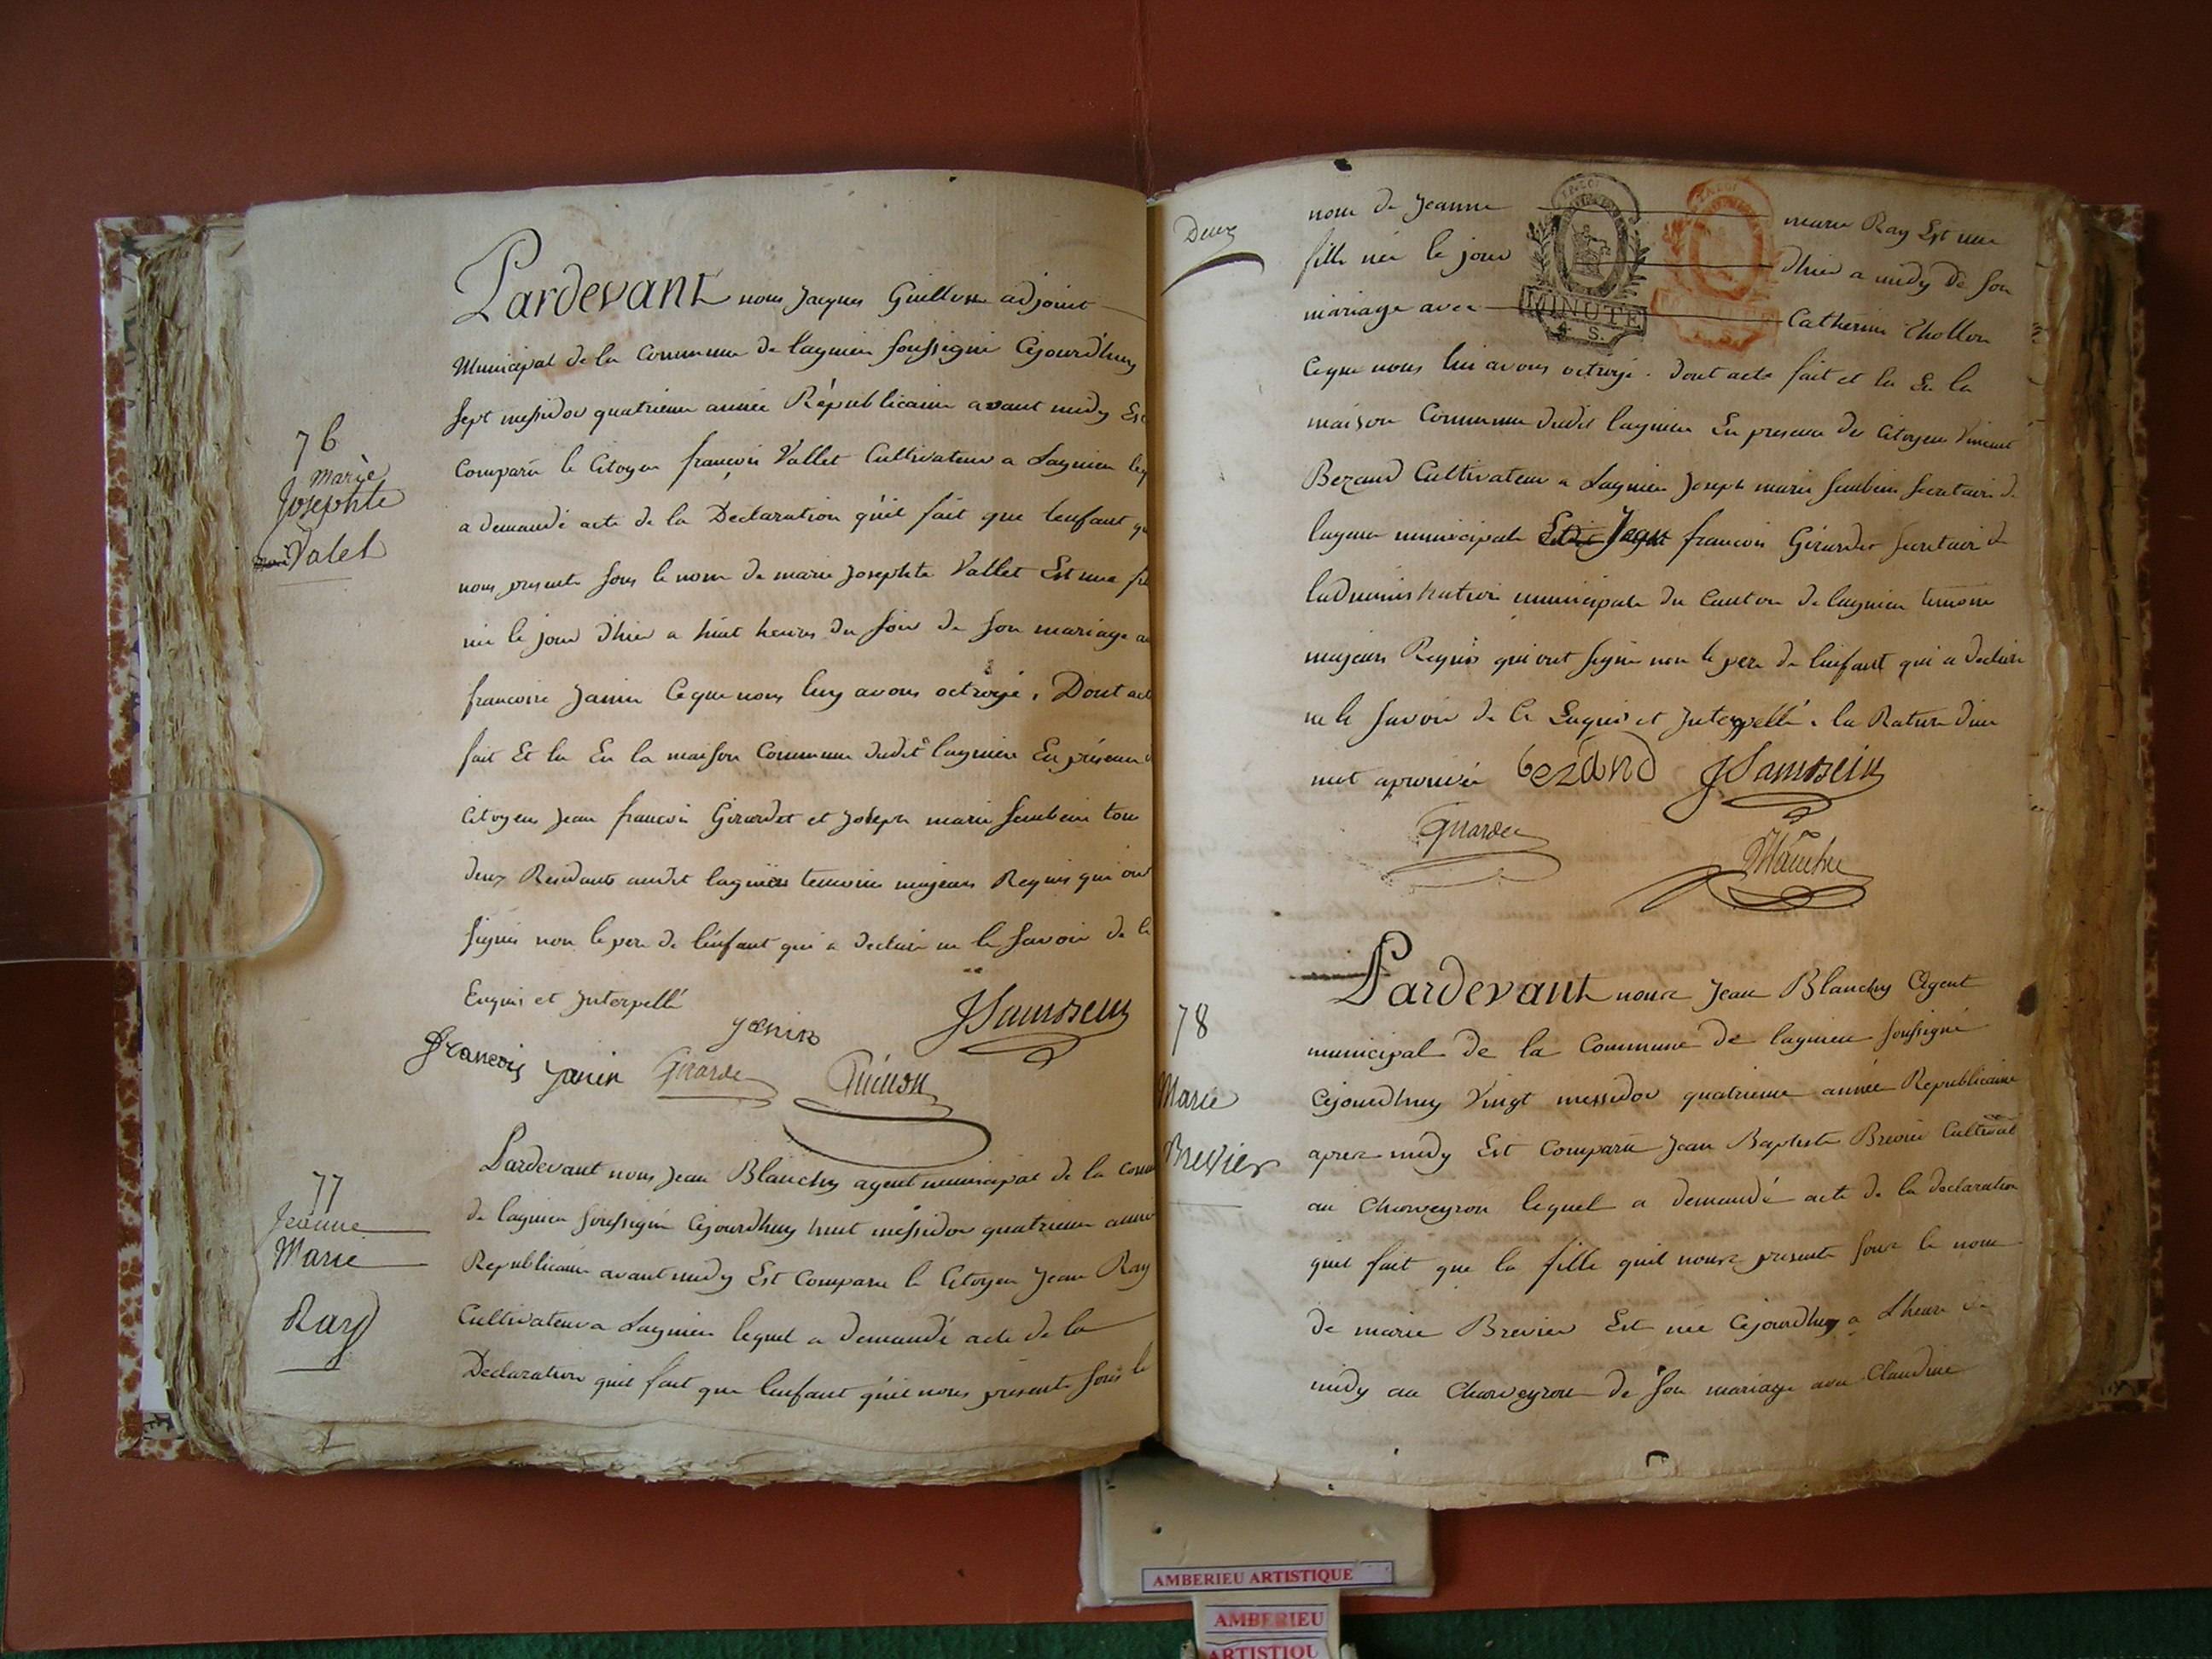 Pardevant nous Jacques Guillon adjoint
Municipal de la Commune de lagnieu soussigné Cejourdhuy
sept messidor quatrieme année Républicaine avant midy Est
Comparu le Citoyen françois Vallet Cultivateur a Lagnieu
a demandé acte de la Declaration qu'il fait que lenfant
nous presente sous le nom de marie Josephte Vallet Est une
née le jour dhier a huit heures du soir de son mariage
francoise Janin Ce que nous luy avons octroyé, Dont
fait Et lu En la maison Commune dudit lagnieu En présence
Citoyens Jean francois Girardet et Joseph marie tous
deux Residants audit lagnieu temoins majeurs Requis qui ont
signés non le pere de l'enfant qui a declaré ne le savoir de ce
Enquis et Interpellé
76
Marie
Josephte
Valet
Janin
francois Janin Girardet
77
Jeanne
Marie
Ray
Pardevant nous Jean Blanchy agent municipal de la
de lagnieu soussigné Cejourdhuy huit messidor quatrieme année
Republicaine avant midy Est Comparu le Citoyen Jean Ray
Cultivateur a Lagnieu lequel a demandé acte de la
Declaration quil fait que lenfant qu'il nous présente sous le
Deux
nom de Jeanne marie Ray Est une
fille née le jour dhier a midy de son
mariage avec Catherine Chollon
MINUTE
4 S.
Ce que nous lui avons octroyé. dont acte fait et lu En la
maison Commune dudit lagnieu En presence des Citoyens Vincent
Bezand Cultivateur a Lagnieu Joseph marie secretaire de
lagence municipale francois Girardet secretaire de
ladministration municipale du Canton de lagnieu temoins
majeurs Requis qui ont signé non le pere de lenfant qui a declaré
ne le savoir de ce Enquis et Interpellé. la Rature dun
mot aprouvée bezand
Girardet
78
Marie
Brevier
Pardevant nous Jean Blanchy Agent
municipal de la Commune de lagnieu soussigné
Cejourdhuy Vingt messidor quatrieme année Republicaine
aprez midy Est Comparu Jean Baptiste Brevier Cultivat
au Charveyron lequel a demandé acte de la declaration
quil fait que la fille quil nous presente sous le nom
de marie Brevier Est née Cejourdhuy a Lheure de
midy au Charveyron de son mariage avec Claudine
AMBERIEU ARTISTIQUE
AMBERIEU